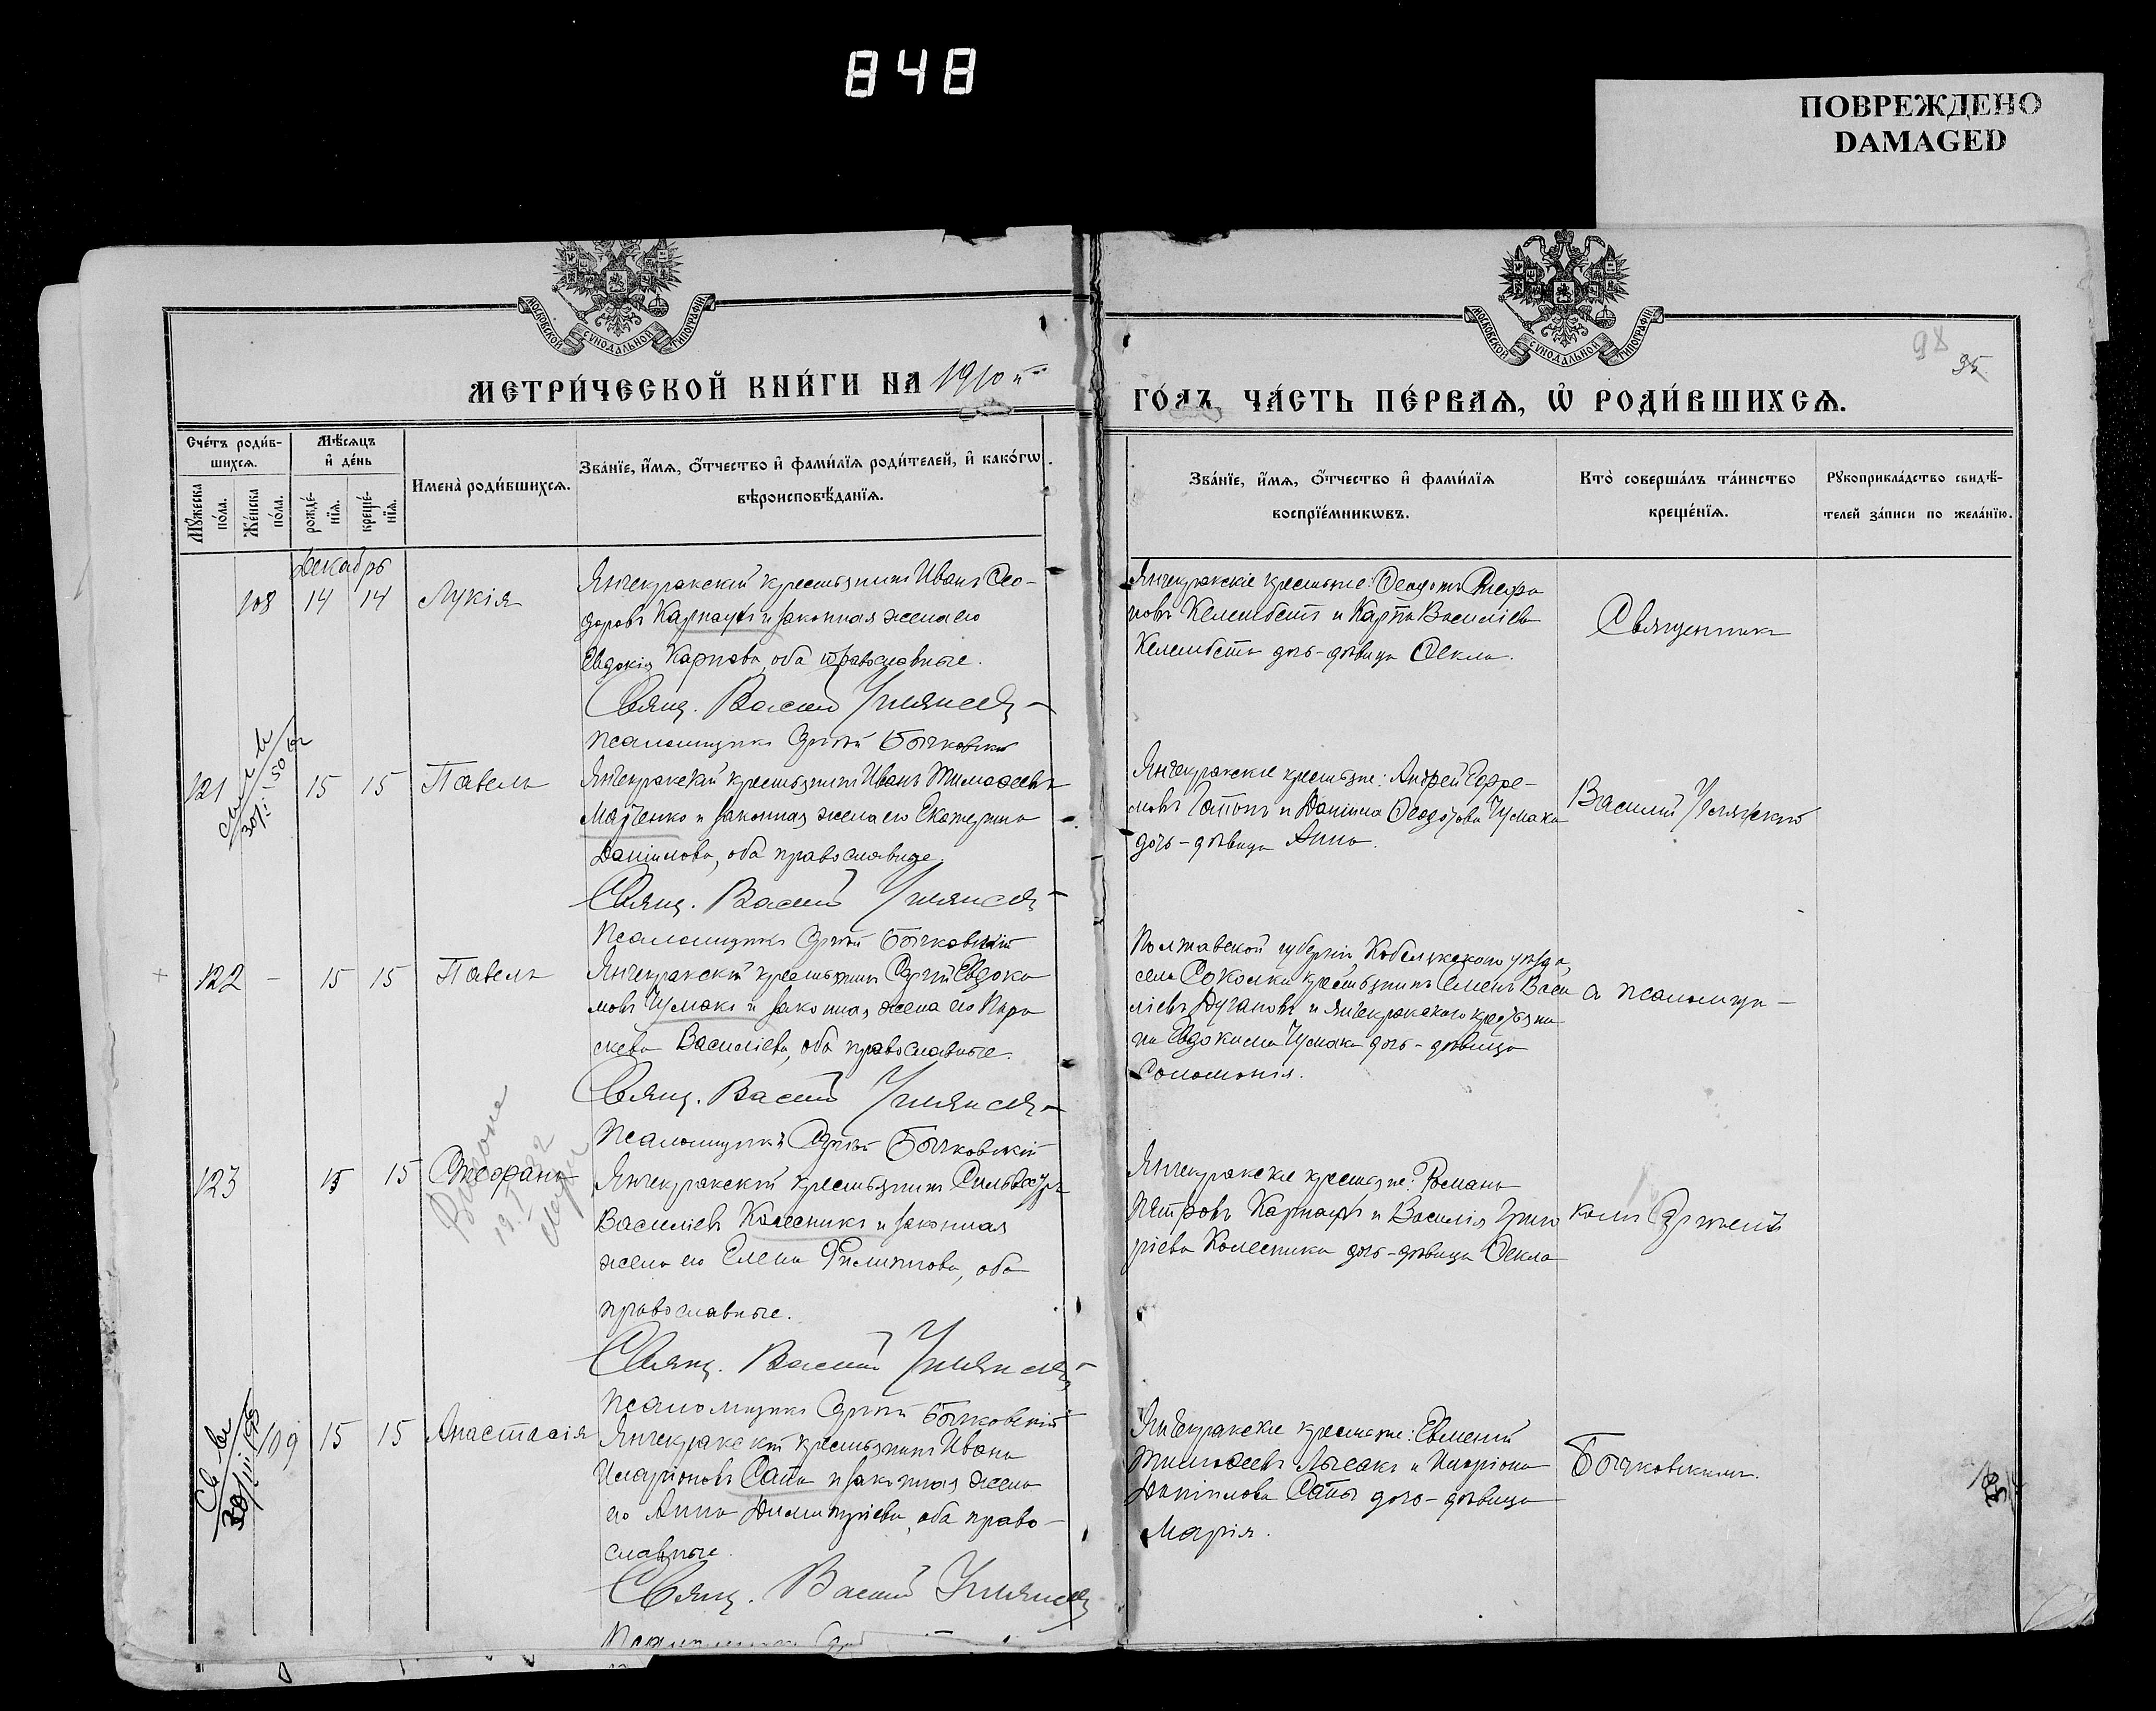 848
ПОВРЕЖДЕНО
DAMAGED
МОСКОВСКОЙ СИНОДАЛЬНОЙ ТИПОГРАФІИ
МОСКОВСКОЙ СИНОДАЛЬНОЙ ТИПОГРАФІИ
98
95
МЕТРИ́ЧЕСКОЙ КНИ́ГИ НА 1910 й
ГО́ДЪ ЧА́СТЬ ПЕ́РВАѦ, Ѡ҆ РОДИ́ВШИХСѦ.
Сче́тъ роди́в-
шихсѧ.
Мѣ́сѧцъ
и҆ де́нь
Мꙋ́жеска
по́ла.
Же́нска
по́ла.
рожде́-
нїѧ.
креще́-
нїѧ.
Имена̀ роди́вшихсѧ.
Зва́нїе, и҆́мѧ, о҆́тчество и҆ фами́лїѧ роди́телей, и҆ како́гѡ
вѣроисповѣ́данїѧ.
Зва́нїе, и҆́мѧ, о҆́тчество и҆ фами́лїѧ
воспрїе́мникѡвъ.
Кто̀ соверша́лъ та́инство
креще́нїѧ.
Рꙋкоприкла́дство свидѣ́-
телей за́писи по жела́нїю.
Декабрь
108 14 14 Лукія
Янчекракскій крестьянинъ Иванъ Ѳео-
доровъ Карнаухъ и законная жена его
Евдокія Карпова, оба православные.
Свящ. Василій
Псаломщикъ Сергій Бычковскій
Янчекракскіе крестьяне: Ѳеодотъ Стефа
новъ Келембетъ и Карпа Василіева
Келембета дочь-дѣвица Ѳекла.
Священникъ
121 15 15 Павелъ
Янчекракскій крестьянинъ Иванъ Тимоѳеевъ
Марченко и законная жена его Екатерина
Даніилова, оба православные.
Свящ. Василій
Псаломщикъ Сергій Бычковскій
Янчекракскіе крестьяне: Андрей Ефре-
мовъ и Даніила Ѳеодотова Чумака
дочь-дѣвица Анна.
Василій
122 - 15 15 Павелъ
Янчекракскій крестьянинъ Сергій Евдоки
мовъ Чумакъ и законная жена его Пара
скева Василіева, оба православные.
Свящ. Василій
Псаломщикъ Сергій Бычковскій
Полтавской губерніи, Кобелякскаго уѣзда,
села Соколки крестьянинъ Семенъ Васи
ліевъ и Янчекракскаго крестьяни
на Евдокима Чумака дочь-дѣвица
Соломонія.
съ псаломщи-
123 15 15 Стефанъ
Янчекракскій крестьянинъ Сильвестръ
Василіевъ Колесникъ и законная
жена его Елена Филиппова, оба
православные.
Свящ. Василій
Псаломщикъ Сергій Бычковскій
Янчекракскіе крестьяне: Романъ
Петровъ Карнаухъ и Василія Григо
ріева Колесника дочь-дѣвица Ѳекла
комъ Сергіемъ
109 15 15 Анастасія
Янчекракскій крестьянинъ Иванъ
Иларіоновъ Сапа и законная жена
его Анна Димитріева, оба право-
славные.
Свящ. Василій
Янчекракскіе крестьяне: Евменій
Тимоѳеевъ Лысакъ и Иларіона
Даніилова Сапы дочь-дѣвица
Марія.
Бычковскимъ.